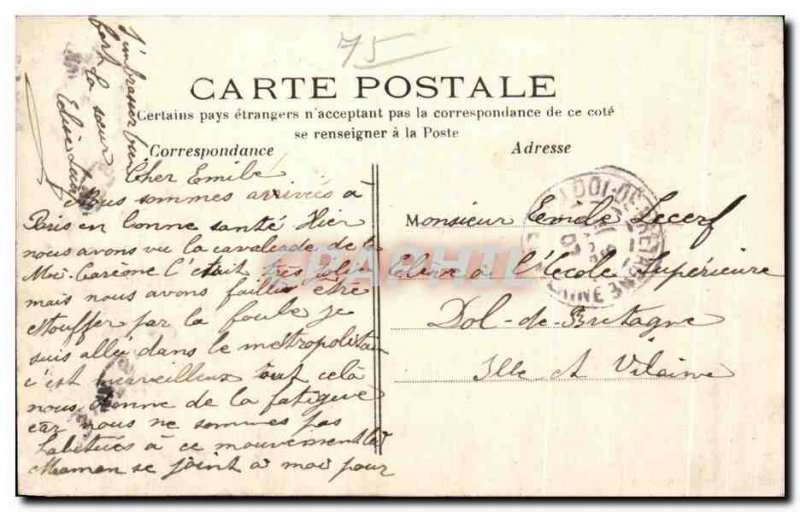 75
CARTE POSTALE
Certains pays étrangers n'acceptant pas la correspondance de ce coté
se renseigner à la Poste
Correspondance
Adresse
Cher Emile
Nous sommes arrivés à
Paris en bonne santé Hier
nous avons vu la cavalcade de la
Mi-Carême C'était très joli
mais nous avons faillis être
étouffer par la foule je
suis allée dans le métropolitain
c'est merveilleux tout celà
nous donne de la fatigue
car nous ne sommes pas
habitués à ce mouvement là
Maman se joint à moi pour
t'embrasser bien
fort ta sœur
Monsieur Emile Lecerf
Elève à l'école Supérieure
Dol-de-Bretagne
Ille et Vilaine
DOL-DE-BRETAGNE
CPAPHIL